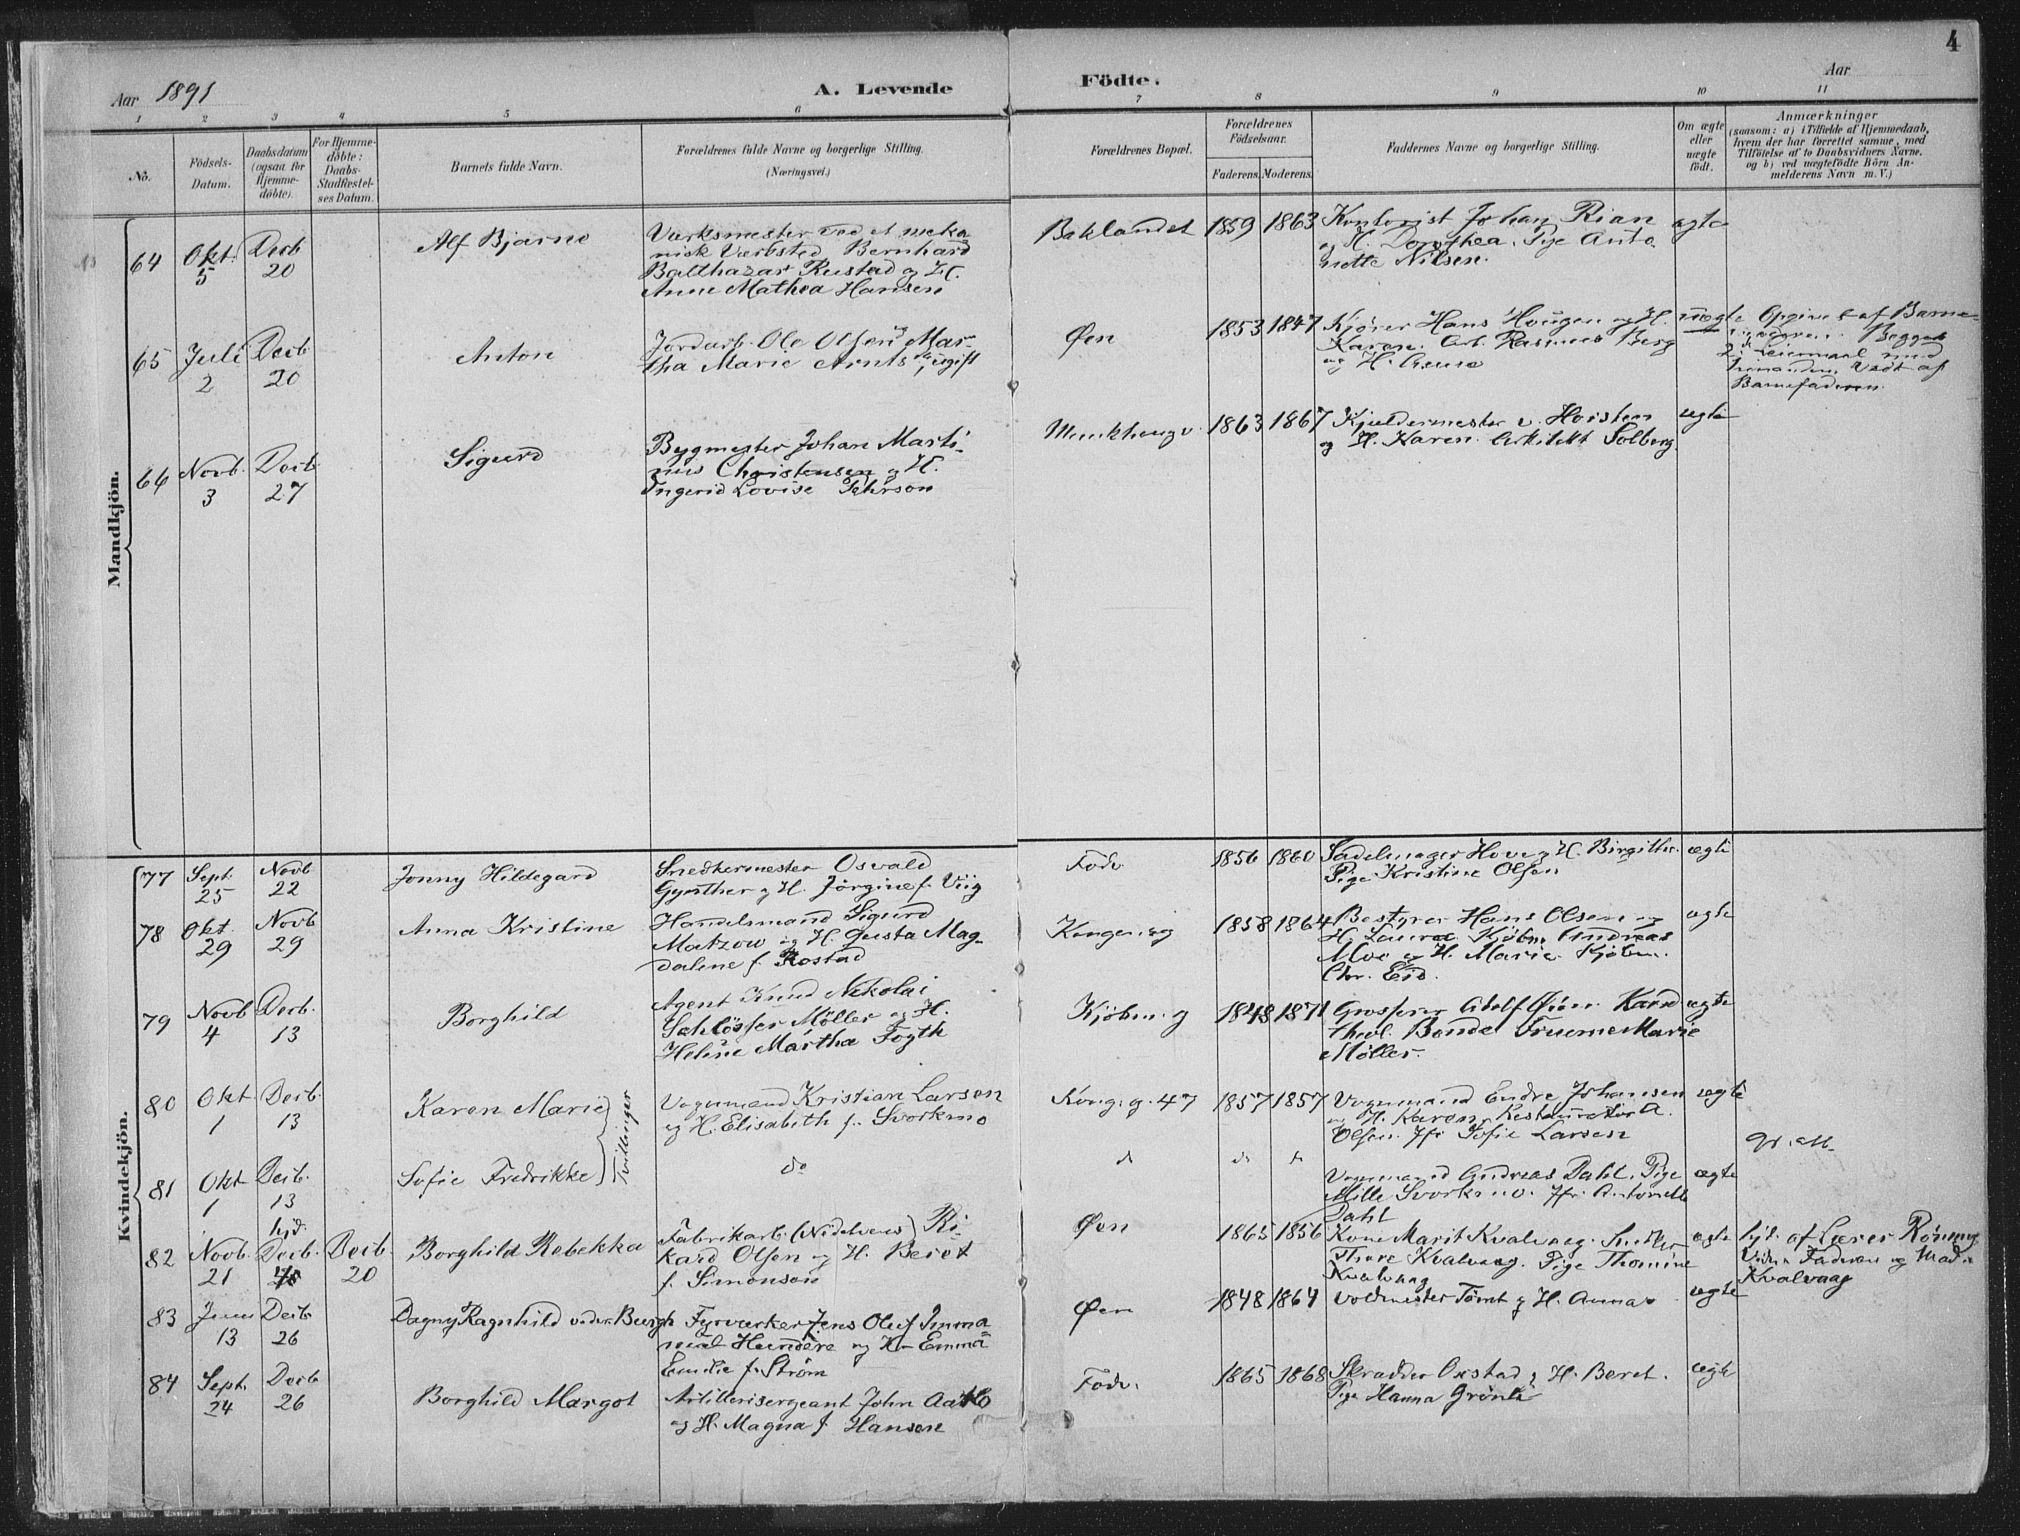 4
Aar 1891
A. Levende
Födte.
Aar
1 2 3 4 5 6 7 8 9 10 11
No.
Födsels-
Datum.
Daabsdatum
(ogsaa for
Hjemme-
döbte).
For Hjemme-
döbte:
Daabs-
Stadfæstel-
ses Datum.
Barnets fulde Navn.
Forældrenes fulde Navne og borgerlige Stilling.
(Næringsvei.)
Forældrenes Bopæl.
Forældrenes
Födselsaar.
Faderens. Moderens.
Faddernes Navne og borgerlige Stilling.
Om ægte
eller
uægte
födt.
Anmærkninger
(saasom: a) i Tilfælde af Hjemmedaab,
hvem der har forrettet samme, med
Tilföielse af to Daabsvidners Navne.
og b) ved uægtefödte Börn An-
melderens Navn m. V.)
Mandkjön.
64
Okt.
5
Decb
20
Alf Bjarne
Værksmester ved et meka
nisk Værksted Bernhard
Balthazar Rustad og H.
Anne Mathea Hansen
Baklandet
1859 1863
Kontorist Johan Rian
og H. Dorothea. Pige Anto
nette Nilsen.
ægte
65
Juli
2
Decb
20
Anton
Jordarb. Ole Olsen og Mar-
tha Marie Arnts, ugift
Øen
1853 1847
Kjører Hans Hougen og H.
Karen. Arb. Rasmus Berg
og H.
uægte
Opgivet af Barne-
Begges
2det Leiermaal med
hinanden. Vedt af
Barnefaderen.
66
Novb.
3
Decb.
27
Sigurd
Bygmester Johan Marti-
nus Christensen og H.
Ingerid Lovise Pehrson
Munkhaugv.
1863 1867
Kjeldermester
og H. Karen. Arkitekt Solberg
ægte
Kvindekjön.
77
Sept.
25
Novb
22
Jenny Hildegard
Snedkermester Osvald
Gynther og H. Jørgine f. Viig
Fødv
1856 1860
Sadelmager Hove og H. Birgithe.
Pige Kristine Olsen
ægte
78
Okt.
29
Novb
29
Anna Kristine
Handelsmand Sigurd
Matzow og H. Gusta Mag-
dalene f. Rostad
Kongensg
1858 1864
Bestyrer Hans Olsen og
H. Laura. Kjøbm. Andreas
Moe og H. Marie. Kjøbm.
Chr. Eid.
ægte
79
Novb
4
Decb.
13
Borghild
Agent Knud Nikolai
Schlösser Møller og H.
Helene Martha Fogth
Kjøbm. g
1848 1871
Grosserer Adolf Øien. Kand
theol. Bonde. Fruerne Marie
Møller.
ægte
80
Okt
1
Decb.
13
Karen Marie
Tvillinger
Vognmand Kristian Larsen
og H. Elisabeth f. Svorkmo
Kong. g. 47
1857 1857
Vognmand Endre Johansen
og H. Karen, Restauratør A.
Olsen. Jfr Sofie Larsen
ægte
81
Okt
1
Decb.
13
Sofie Fredrikke
do
d d d
Vognmand Andreas Dahl. Pige
Mille Svorkmo. Jfr. Antonette
Dahl
ægte
82
Novb.
21
hjd.
Decb.
Decb.
20
Borghild Rebekka
Fabrikarb. (Nidelvens) Ri-
kard Olsen og H. Beret
f. Simonsen
Øen
1865 1856
Kone Marit Kvalvaag. Snedker
Thore Kvalvaag. Pige Thomine
Kvalvaag
ægte
hjd. af Lærer Rønning
Kvalvaag
83
Juni
13
Decb
26
Dagny Ragnhild
Fyrværker Jens Oluf Imma
nuel Hundere og H. Emma
Emilie f. Strøm
Øen
1848 1864
Voldmester Tømt og H. Anna
ægte
84
Sept.
24
Decb
26
Borghild Margot
Artillerisergeant John
og H. Magna f. Hansen
Fødv.
1865 1868
Skrædder Oxstad og H. Beret.
Pige Hanna Grønli
ægte